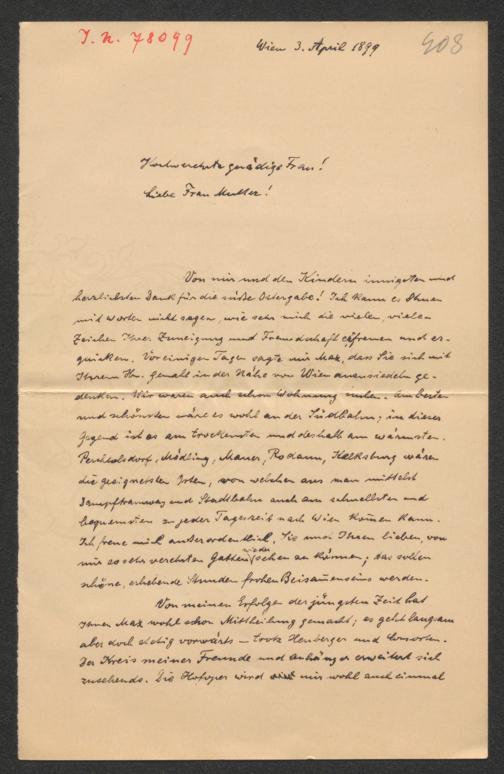 I. N. 78099
Wien 3. April 1899
408
Hochverehrte gnädige Frau!
Liebe Frau Mutter!
Von mir und den Kindern innigsten und
herzlichsten Dank für die süße Ostergabe! Ich kann es Ihnen
mit Worten nicht sagen, wie sehr mich die vielen, vielen
Zeichen Ihrer Zuneigung und Freundschaft erfreuen und er-
quicken. Vor einigen Tagen sagte mir Max, dass Sie sich mit
Ihrem Hn. Gemahl in der Nähe von Wien anzusiedeln ge-
denken. Wir waren auch schon Wohnung suchen. Am besten
und schönsten wäre es wohl an der Südbahn; in dieser
Gegend ist es am trockensten und deshalb am wärmsten.
Perchtolsdorf, Mödling, Mauer, Rodaun, Kalksburg wären
die geeignetsten Orten, von welchen aus man mittelst
Dampftramway und Stadtbahn auch am schnellsten und
bequemsten zu jeder Tageszeit nach Wien kom̄en kann.
Ich freue mich außerordentlich, Sie und Ihren lieben, von
mir so sehr verehrten Gatten wieder sehen zu können; das sollen
schöne, erhebende Stunden frohen Beisam̄enseins werden.
Von meinen Erfolgen der jüngsten Zeit hat
Ihnen Max wohl schon Mittheilung gemacht; es geht langsam
aber doch stetig vorwärts – trotz Heuberger und Consorten.
Der Kreis meiner Freunde und Anhänger erweitert sich
zusehends. Die Hofoper wird mir wohl auch einmal